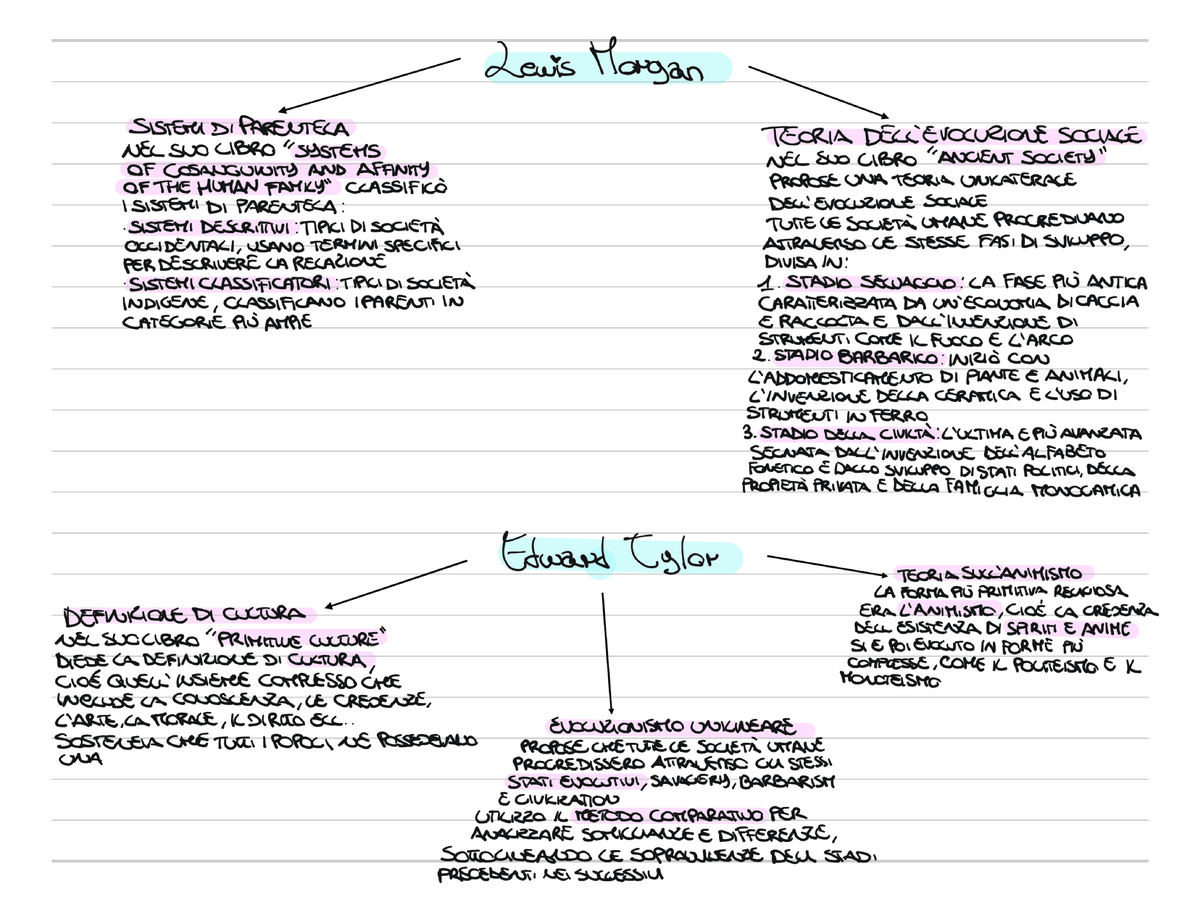 Lewis Morgan
SISTEMI DI PARENTELA
NEL SUO LIBRO "SYSTEMS
OF COSANGUINITY AND AFFINITY
OF THE HUMAN FAMILY" CLASSIFICÒ
I SISTEMI DI PARENTELA:
·SISTEMI DESCRITTIVI: TIPICI DI SOCIETÀ
OCCIDENTALI, USANO TERMINI SPECIFICI
PER DESCRIVERE LA RELAZIONE
·SISTEMI CLASSIFICATORI: TIPICI DI SOCIETÀ
INDIGENE, CLASSIFICANO I PARENTI IN
CATEGORIE PIÙ AMPIE
TEORIA DELL'EVOLUZIONE SOCIALE
NEL SUO LIBRO "ANCIENT SOCIETY"
PROPOSE UNA TEORIA UNILATERALE
DELL'EVOLUZIONE SOCIALE
TUTTE LE SOCIETÀ UMANE PROGREDIVANO
ATTRAVERSO LE STESSE FASI DI SVILUPPO,
DIVISA IN:
1. STADIO SELVAGGIO: LA FASE PIÙ ANTICA
CARATTERIZZATA DA UN'ECONOMIA DI CACCIA
E RACCOLTA E DALL'INVENZIONE DI
STRUMENTI COME IL FUOCO E L'ARCO
2. STADIO BARBARICO: INIZIÒ CON
L'ADDOMESTICAMENTO DI PIANTE E ANIMALI,
L'INVENZIONE DELLA CERAMICA E L'USO DI
STRUMENTI IN FERRO
3. STADIO DELLA CIVILTÀ: L'ULTIMA E PIÙ AVANZATA
SEGNATA DALL'INVENZIONE DELL'ALFABETO
FONETICO E DALLO SVILUPPO DI STATI POLITICI, DELLA
PROPIETÀ PRIVATA E DELLA FAMIGLIA MONOGAMICA
Edward Tylor
DEFINIZIONE DI CULTURA
NEL SUO LIBRO "PRIMITIVE CULTURE"
DIEDE LA DEFINIZIONE DI CULTURA,
CIOÈ QUELL'INSIEME COMPLESSO CHE
INCLUDE LA CONOSCENZA, LE CREDENZE,
L'ARTE, LA MORALE, IL DIRITTO ECC..
SOSTENEVA CHE TUTTI I POPOLI NE POSSEDEVANO
UNA
EVOLUZIONISMO UNILINEARE
PROPOSE CHE TUTTE LE SOCIETÀ UMANE
PROGREDISSERO ATTRAVERSO GLI STESSI
STATI EVOLUTIVI, SAVAGERY, BARBARISM
E CIVILIZATION
UTILIZZO IL METODO COMPARATIVO PER
ANALIZZARE SOMIGLIANZE E DIFFERENZE,
SOTTOLINEANDO LE SOPRAVVIVENZE DEGLI STADI
PRECEDENTI NEI SUCCESSIVI
TEORIA SULL'ANIMISMO
LA FORMA PIÙ PRIMITIVA RELIGIOSA
ERA L'ANIMISMO, CIOÈ LA CREDENZA
DELL ESISTENZA DI SPIRITI E ANIME
SI E POI EVOLUTO IN FORME PIÙ
COMPLESSE, COME IL POLITEISMO E IL
MONOTEISMO